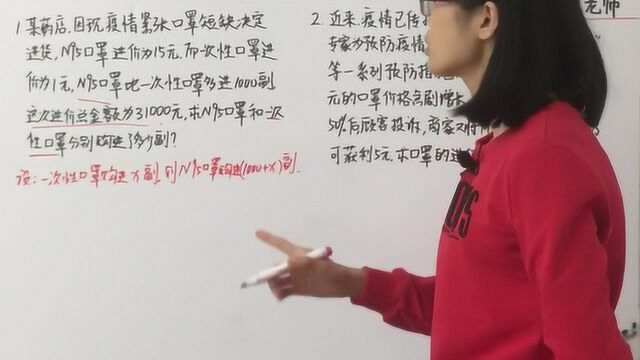 1.某药店,因现疫情紧张口罩短缺决定
进货,N95口罩进价为15元.而一次性口罩进
价为1元,N95口罩比一次性口罩多进1000副
这次进价总金额为31000元,求N95口罩和一次
性口罩分别购进了多少副?
设:一次性口罩购进x副,则N95口罩购进(1000+x)副.
2.近来,疫情已
专家为预防疫情
等一系列预防措施
元的口罩价格高剧增长
50%后顾客投诉,商家又将
可获利5元.求口罩的进
老师